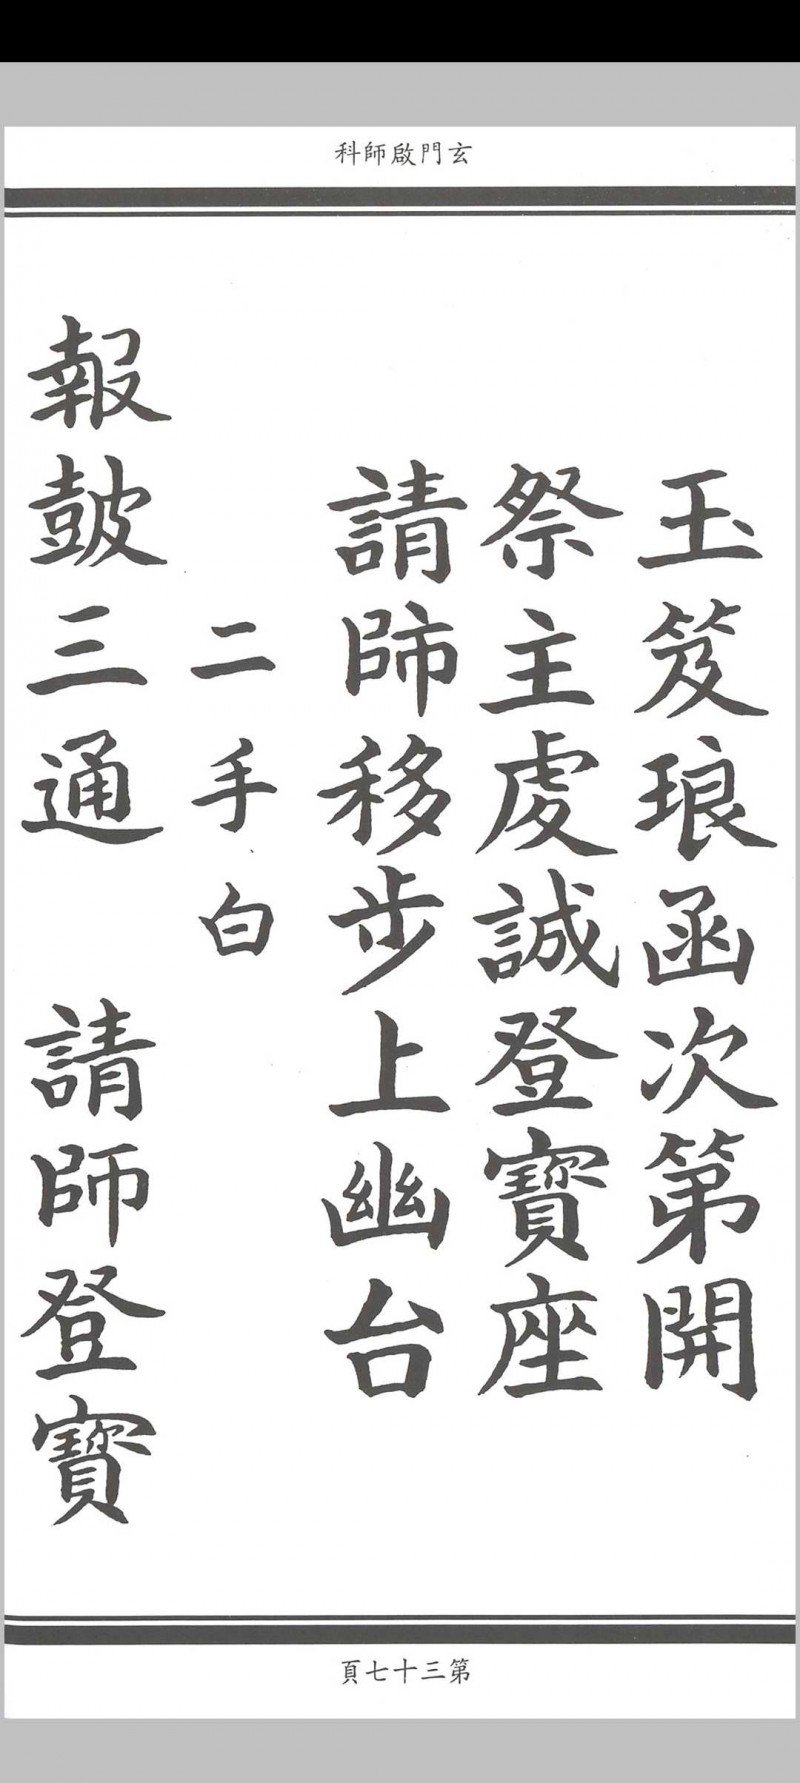 玄門啟師科
玉笈琅函次第開
祭主虔誠登寶座
請師移步上幽台
二手白
報皷三通　請師登寶
第三十七頁